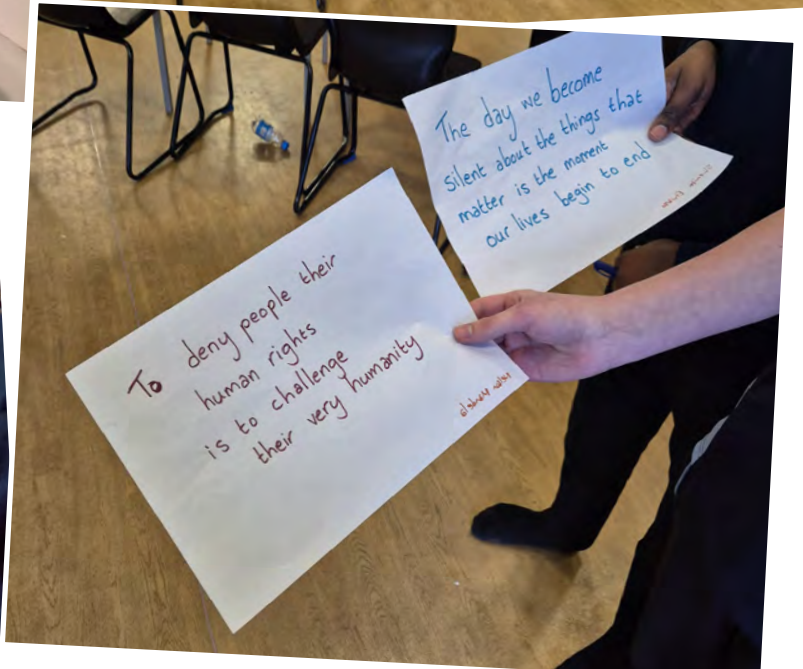 The day we become
silent about the things that
matter is the moment
our lives begin to end
To deny people their
human rights
is to challenge
their very humanity